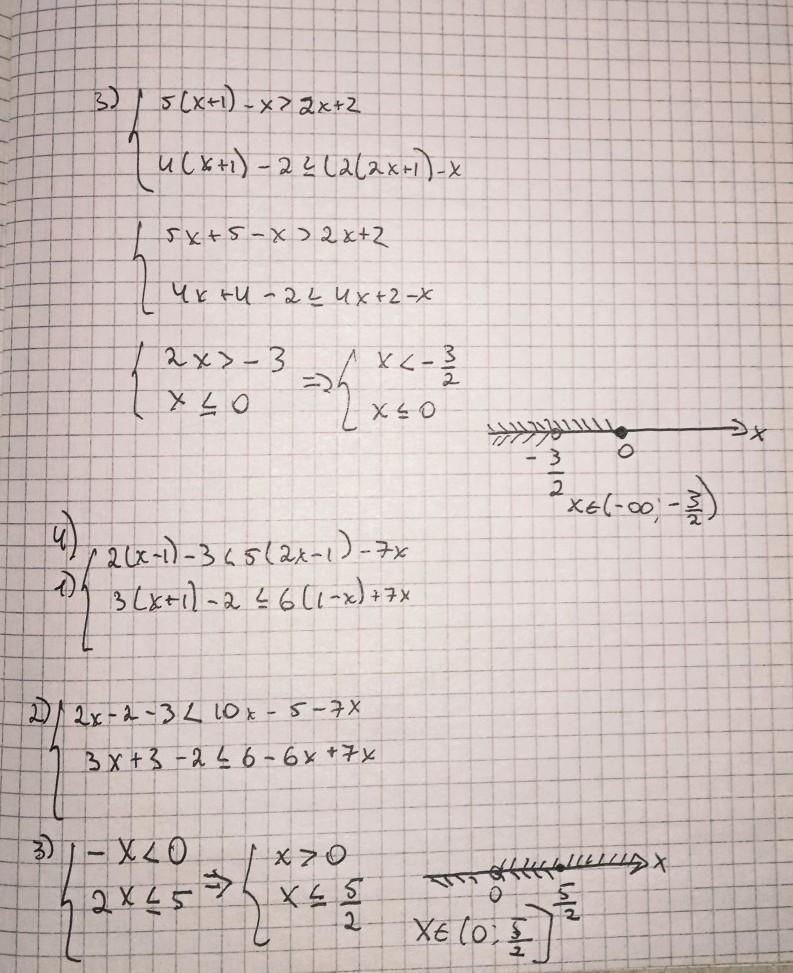 3) { 5(x+1) - x > 2x+2
4(x+1) - 2 ≤ (2(2x+1) - x
{ 5x + 5 - x > 2x+2
4x + 4 - 2 ≤ 4x + 2 - x
{ 2x > - 3 ⇒ { x < - 3/2
x ≤ 0 x ≤ 0
x
- 3/2 0
x∈(-∞; -3/2)
4)
{ 2(x-1) - 3 < 5(2x-1) - 7x
1) 3(x+1) - 2 ≤ 6(1-x) + 7x
2) { 2x - 2 - 3 < 10x - 5 - 7x
3x + 3 - 2 ≤ 6 - 6x + 7x
3) { - x < 0 ⇒ { x > 0
2x ≤ 5 x ≤ 5/2
x
0 5/2
x∈(0; 5/2]